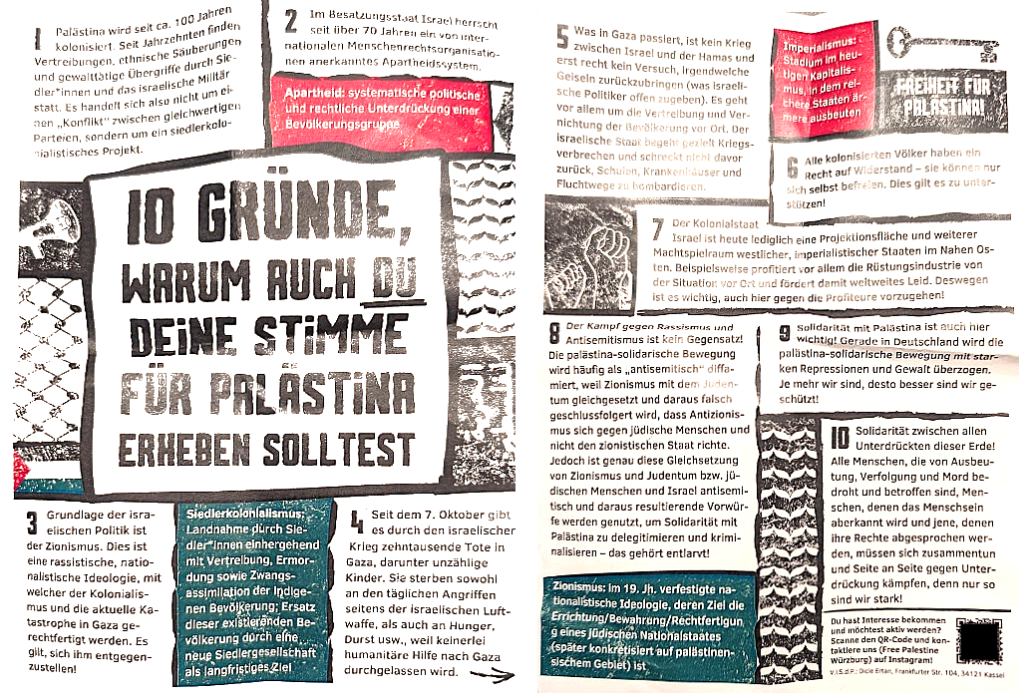 1 Palästina wird seit ca. 100 Jahren
kolonisiert. Seit Jahrzehnten finden
Vertreibungen, ethnische Säuberungen
und gewalttätige Übergriffe durch Sie-
dler*innen und das israelische Militär
statt. Es handelt sich also nicht um ei-
nen „Konflikt“ zwischen gleichwertigen
Parteien, sondern um ein siedlerkolo-
nialistisches Projekt.
2 Im Besatzungsstaat Israel herrscht
seit über 70 Jahren ein von inter-
nationalen Menschenrechtsorganisatio-
nen anerkanntes Apartheidssystem.
Apartheid: systematische politische
und rechtliche Unterdrückung einer
Bevölkerungsgruppe
10 GRÜNDE,
WARUM AUCH DU
DEINE STIMME
FÜR PALÄSTINA
ERHEBEN SOLLTEST
3 Grundlage der isra-
elischen Politik ist
der Zionismus. Dies ist
eine rassistische, natio-
nalistische Ideologie, mit
welcher der Kolonialis-
mus und die aktuelle Ka-
tastrophe in Gaza ge-
rechtfertigt werden. Es
gilt, sich ihm entgegen-
zustellen!
Siedlerkolonialismus:
Landnahme durch Sie-
dler*innen einhergehend
mit Vertreibung, Ermor-
dung sowie Zwangs-
assimilation der Indige-
nen Bevölkerung; Ersatz
dieser existierenden Be-
völkerung durch eine
neue Siedlergesellschaft
als langfristiges Ziel
4 Seit dem 7. Oktober gibt
es durch den israelischer
Krieg zehntausende Tote in
Gaza, darunter unzählige
Kinder. Sie sterben sowohl
an den täglichen Angriffen
seitens der israelischen Luft-
waffe, als auch an Hunger,
Durst usw., weil keinerlei
humanitäre Hilfe nach Gaza
durchgelassen wird.
5 Was in Gaza passiert, ist kein Krieg
zwischen Israel und der Hamas und
erst recht kein Versuch, irgendwelche
Geiseln zurückzubringen (was israeli-
sche Politiker offen zugeben). Es geht
vor allem um die Vertreibung und Ver-
nichtung der Bevölkerung vor Ort. Der
israelische Staat begeht gezielt Kriegs-
verbrechen und schreckt nicht davor
zurück, Schulen, Krankenhäuser und
Fluchtwege zu bombardieren.
Imperialismus:
Stadium im heu-
tigen Kapitalis-
mus, in dem rei-
chere Staaten är-
mere ausbeuten
FREIHEIT FÜR
PALÄSTINA!
6 Alle kolonisierten Völker haben ein
Recht auf Widerstand – sie können nur
sich selbst befreien. Dies gilt es zu unter-
stützen!
7 Der Kolonialstaat
Israel ist heute lediglich eine Projektionsfläche und weiterer
Machtspielraum westlicher, imperialistischer Staaten im Nahen Os-
ten. Beispielsweise profitiert vor allem die Rüstungsindustrie von
der Situation vor Ort und fördert damit weltweites Leid. Deswegen
ist es wichtig, auch hier gegen die Profiteure vorzugehen!
8 Der Kampf gegen Rassismus und
Antisemitismus ist kein Gegensatz!
Die palästina-solidarische Bewegung
wird häufig als „antisemitisch“ diffa-
miert, weil Zionismus mit dem Juden-
tum gleichgesetzt und daraus falsch
geschlussfolgert wird, dass Antizionis-
mus sich gegen jüdische Menschen und
nicht den zionistischen Staat richte.
Jedoch ist genau diese Gleichsetzung
von Zionismus und Judentum bzw. jü-
dischen Menschen und Israel antisemi-
tisch und daraus resultierende Vorwür-
fe werden genutzt, um Solidarität mit
Palästina zu delegitimieren und krimi-
nalisieren – das gehört entlarvt!
Zionismus: im 19. Jh. verfestigte na-
tionalistische Ideologie, deren Ziel die
Errichtung/Bewahrung/Rechtfertigun
g eines jüdischen Nationalstaates
(später konkretisiert auf palästinen-
sischem Gebiet) ist
9 Solidarität mit Palästina ist auch hier
wichtig! Gerade in Deutschland wird die
palästina-solidarische Bewegung mit star-
ken Repressionen und Gewalt überzogen.
Je mehr wir sind, desto besser sind wir ge-
schützt!
10 Solidarität zwischen allen
Unterdrückten dieser Erde!
Alle Menschen, die von Ausbeu-
tung, Verfolgung und Mord be-
droht und betroffen sind, Men-
schen, denen das Menschsein
aberkannt wird und jene, denen
ihre Rechte abgesprochen wer-
den, müssen sich zusammentun
und Seite an Seite gegen Unter-
drückung kämpfen, denn nur so
sind wir stark!
Du hast Interesse bekommen
und möchtest aktiv werden?
Scanne den QR-Code und kon-
taktiere uns (Free Palestine
Würzburg) auf Instagram!
V.i.S.d.P.: Dicle Ertan, Frankfurter Str. 104, 34121 Kassel